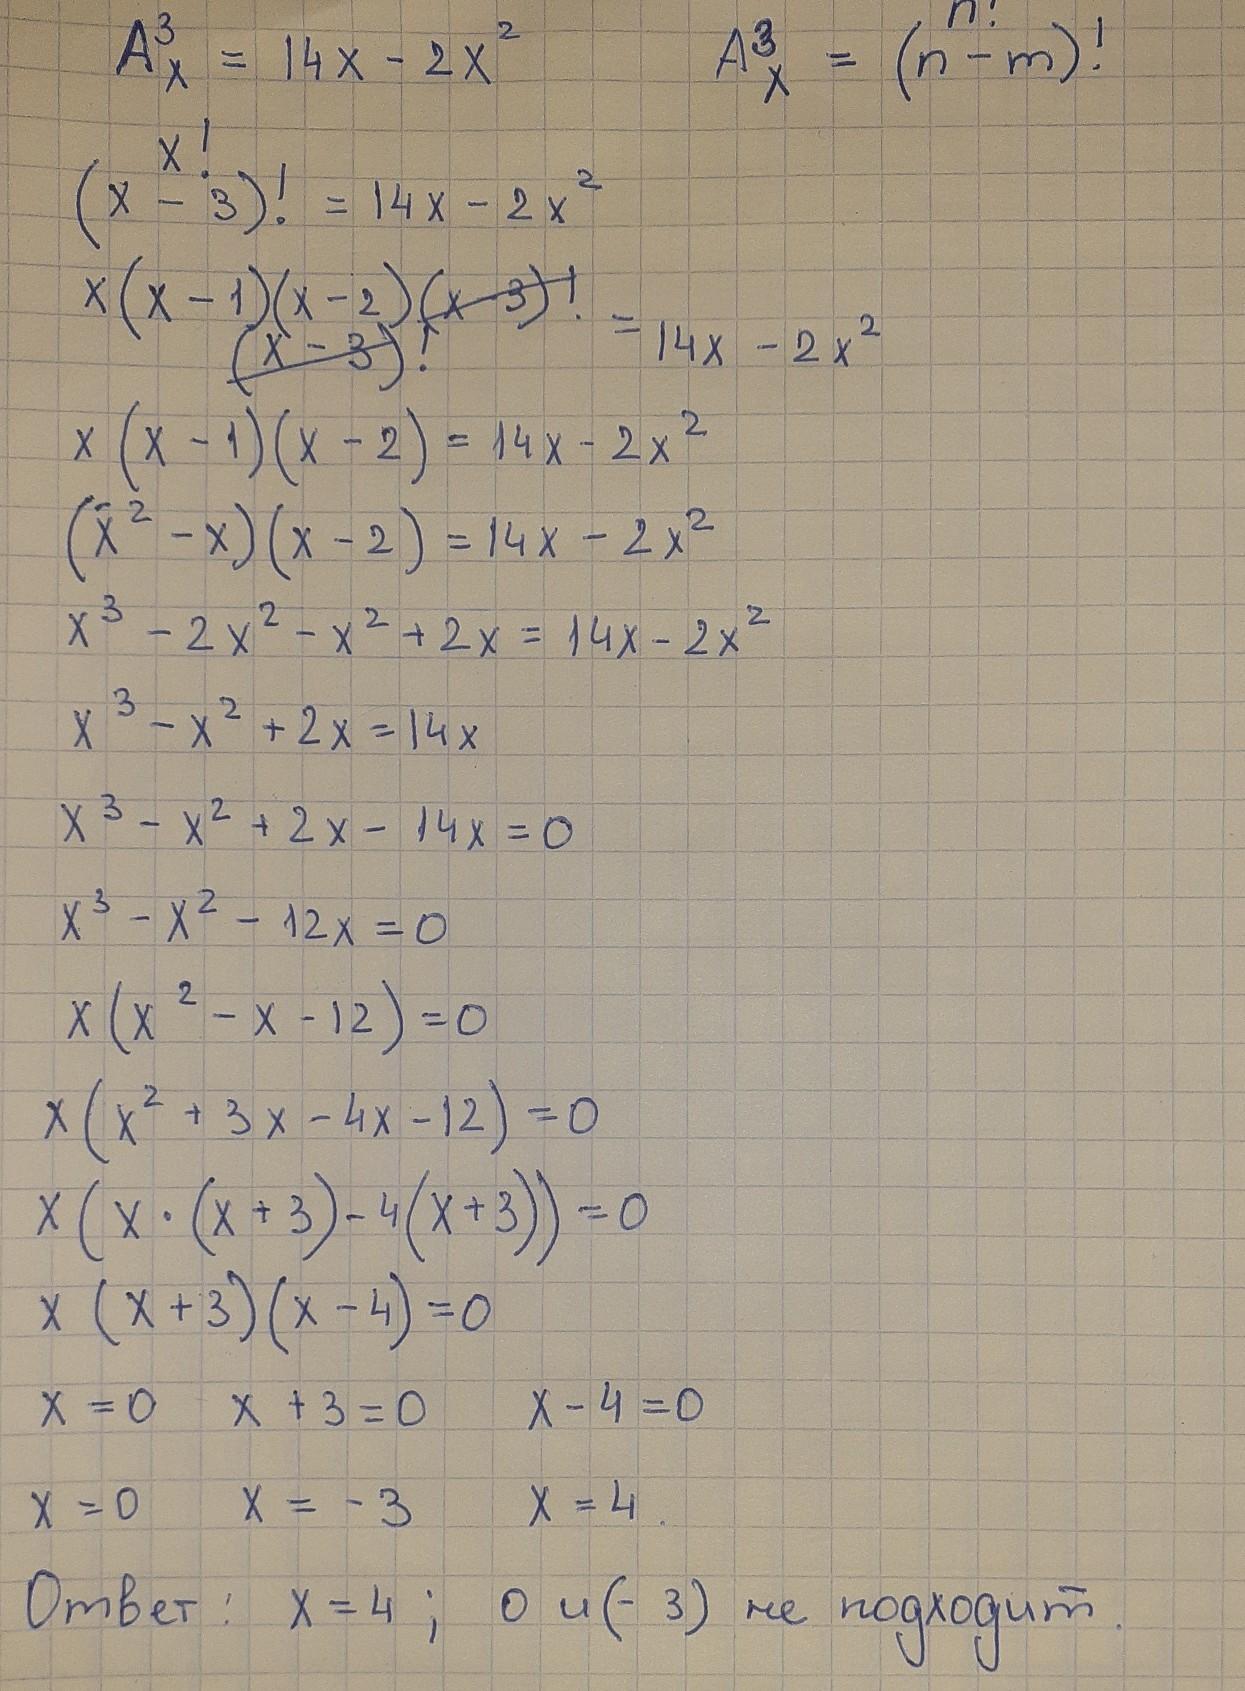 A³ₓ = 14x - 2x² A³ₓ = n! (n - m)!
x!
(x - 3)! = 14x - 2x²
x(x - 1)(x - 2)(x - 3)!
(x - 3)! = 14x - 2x²
x(x - 1)(x - 2) = 14x - 2x²
(x² - x)(x - 2) = 14x - 2x²
x³ - 2x² - x² + 2x = 14x - 2x²
x³ - x² + 2x = 14x
x³ - x² + 2x - 14x = 0
x³ - x² - 12x = 0
x(x² - x - 12) = 0
x(x² + 3x - 4x - 12) = 0
x(x · (x + 3) - 4(x + 3)) = 0
x (x + 3)(x - 4) = 0
x = 0 x + 3 = 0 x - 4 = 0
x = 0 x = - 3 x = 4.
Ответ: x = 4; 0 и (- 3) не подходит.